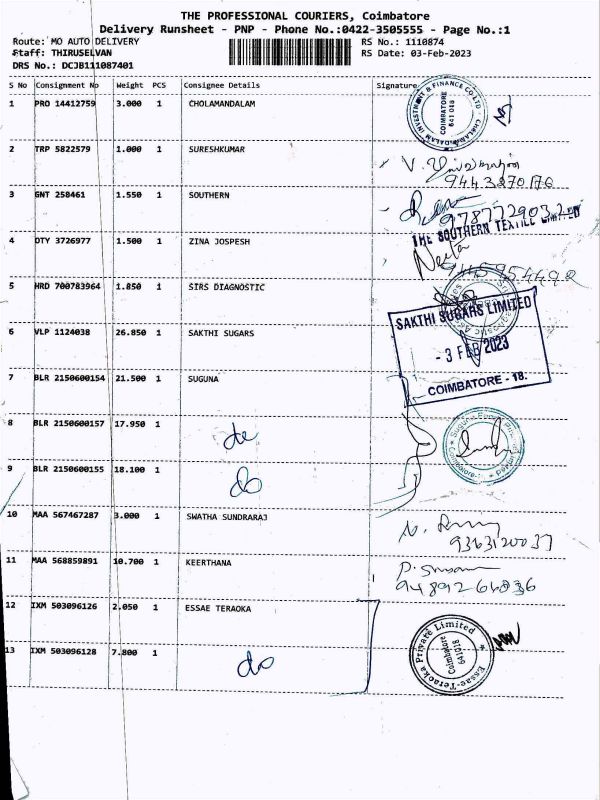 THE PROFESSIONAL COURIERS, Coimbatore
Delivery Runsheet - PNP - Phone No.:0422-3505555 - Page No.:1
Route: MO AUTO DELIVERY RS No.: 1110874
Staff: THIRUSELVAN RS Date: 03-Feb-2023
DRS No.: DCJB111087401
S No Consignment No Weight PCS Consignee Details Signature
1 PRO 14412759 3.000 1 CHOLAMANDALAM
CHOLAMANDALAM INVESTMENT & FINANCE CO LTD
COIMBATORE
641 018
2 TRP 5822579 1.000 1 SURESHKUMAR
V.
3 GNT 258461 1.550 1 SOUTHERN
THE SOUTHERN TEXTILE LIMITED
4 DTY 3726977 1.500 1 ZINA JOSPESH
5 HRD 700783964 1.850 1 SIRS DIAGNOSTIC
6 VLP 1124038 26.850 1 SAKTHI SUGARS
SAKTHI SUGARS LIMITED
- 3 FEB 2023
COIMBATORE - 18.
7 BLR 2150600154 21.500 1 SUGUNA
8 BLR 2150600157 17.950 1
9 BLR 2150600155 18.100 1 do
10 MAA 567467287 3.000 1 SWATHA SUNDRARAJ
9363120037
11 MAA 568859891 10.700 1 KEERTHANA
12 IXM 503096126 2.050 1 ESSAE TERAOKA
Essae-Teraoka Private Limited
Coimbatore
641018
13 IXM 503096128 7.800 1 do